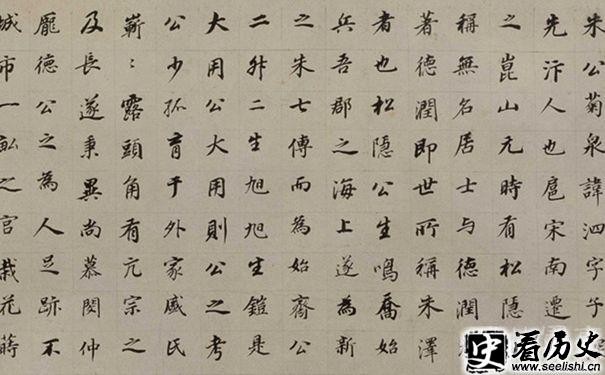 朱公菊泉諱泗字子
先汴人也扈宋南遷
之崑山元時有松隱
稱無名居士与德潤
著德潤即世所稱朱澤
者也松隱公生鳴喬始
兵吾郡之海上遂為新
之朱七傳而為始齋公
二外二生旭旭生鎧是
大用公大用則公之考
公少孤育于外家戚氏
嶄〻露頭角有亢宗之
及長遂秉異尚慕閔仲
龐德公之為人足跡不
城市一畆之宮栽花蒔
史 看历史
www.seelishi.cn